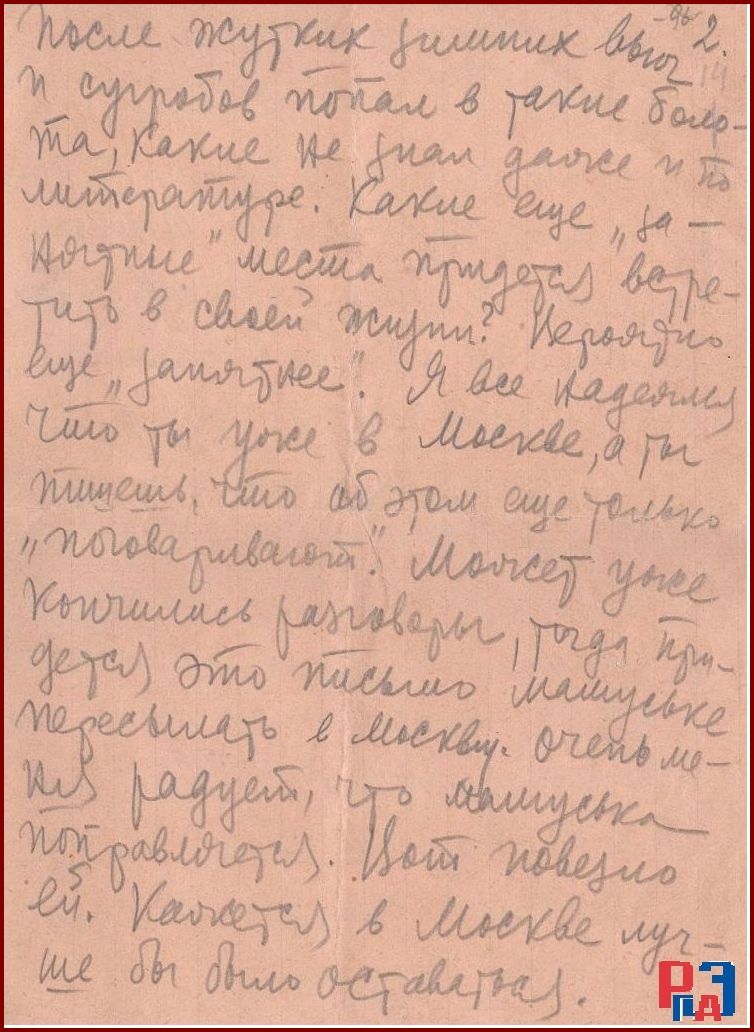 2.
14
После жутких зимних вьюг
и сугробов попал в такие боло-
та, какие не знал даже и по
литературе. Какие еще „за-
нятные" места придется встре-
тить в своей жизни? Вероятно
еще „занятнее". Я все надеялся
что ты уже в Москве, а ты
пишешь, что об этом еще только
„поговаривают". Может уже
кончились разговоры, тогда при-
дется это письмо мамуське
пересылать в Москву. Очень ме-
ня радует, что мамуська
поправляется. Вот повезло
ей. Кажется в Москве луч-
ше бы было оставаться.
РПДЭ